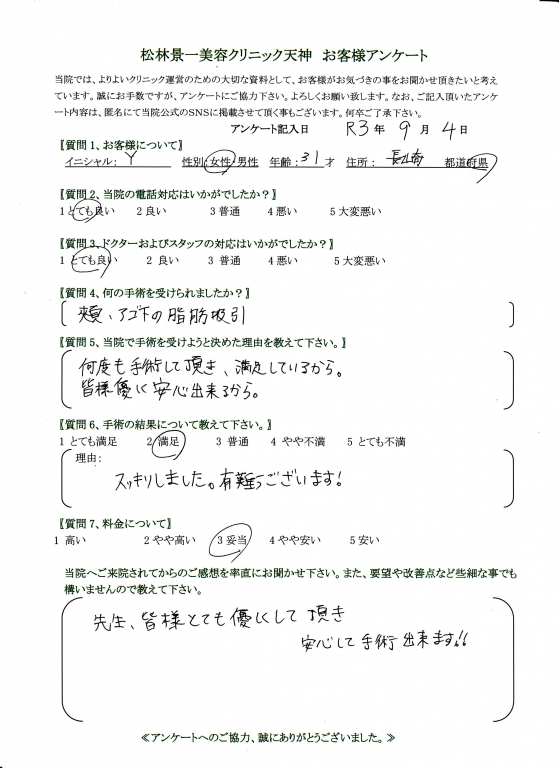 松林景一美容クリニック天神　お客様アンケート
当院では、よりよいクリニック運営のための大切な資料として、お客様がお気づきの事をお聞かせ頂きたいと考え
ています。誠にお手数ですが、アンケートにご協力下さい。よろしくお願い致します。なお、ご記入頂いたアンケ
ート内容は、匿名にて当院公式のSNSに掲載させて頂く事もございます。何卒ご了承下さい。
アンケート記入日　R3年　9月　4日
【質問1、お客様について】
イニシャル：Y　性別：女性・男性　年齢：31才　住所：長崎　都道府県
【質問2、当院の電話対応はいかがでしたか？】
1 とても良い　2 良い　3 普通　4 悪い　5 大変悪い
【質問3、ドクターおよびスタッフの対応はいかがでしたか？】
1 とても良い　2 良い　3 普通　4 悪い　5 大変悪い
【質問4、何の手術を受けられましたか？】
頬、アゴ下の脂肪吸引
【質問5、当院で手術を受けようと決めた理由を教えて下さい。】
何度も手術して頂き、満足しているから。
皆様優しく安心出来るから。
【質問6、手術の結果について教えて下さい。】
1 とても満足　2 満足　3 普通　4 やや不満　5 とても不満
理由：
スッキリしました。有難うございます！
【質問7、料金について】
1 高い　2 やや高い　3 妥当　4 やや安い　5 安い
当院へご来院されてからのご感想を率直にお聞かせ下さい。また、要望や改善点など些細な事でも
構いませんので教えて下さい。
先生、皆様とても優しくして頂き
安心して手術出来ます!!
≪アンケートへのご協力、誠にありがとうございました。≫